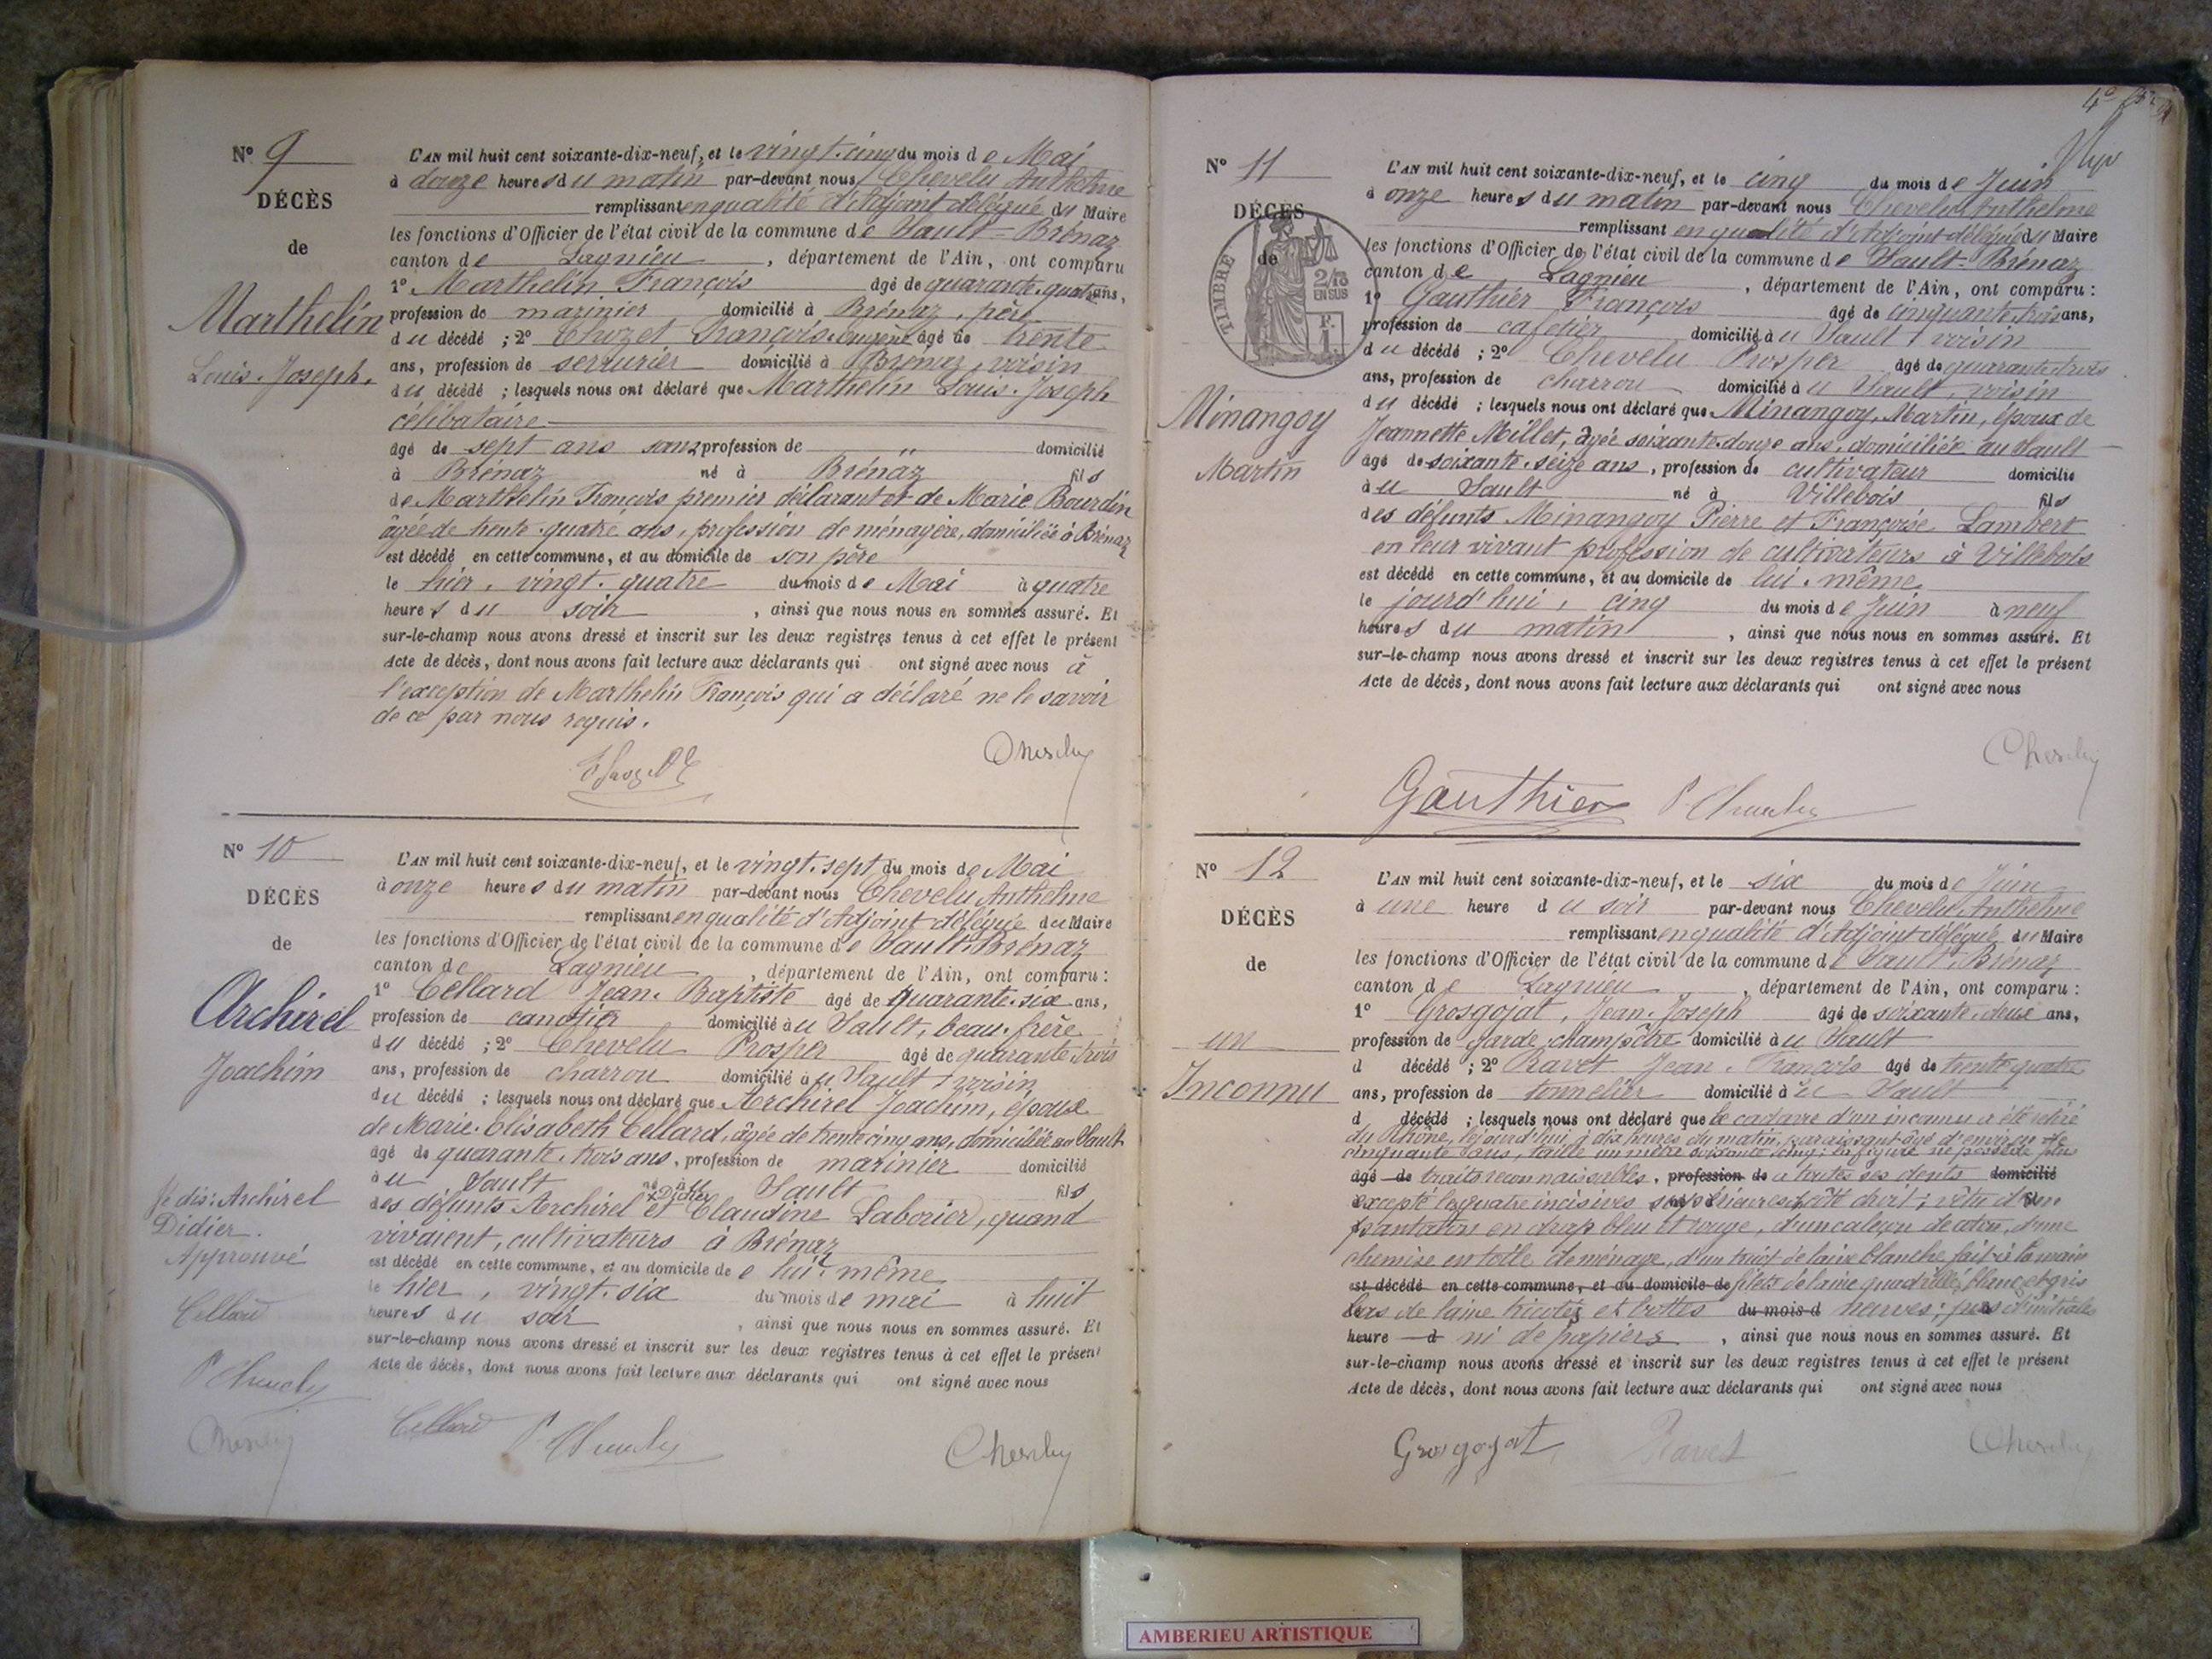 N° 9
DÉCÈS
de
Marthelin
Louis. Joseph.
L'AN mil huit cent soixante-dix-neuf, et le vingt. cinq du mois de Mai
à douze heures du matin par-devant nous Chevelu Anthelme
remplissant en qualité d'Adjoint délégué du Maire
les fonctions d'Officier de l'état civil de la commune de Sault-Brénaz
canton de Lagnieu, département de l'Ain, ont comparu
1° Marthelin François âgé de quarante. quatre ans,
profession de marinier domicilié à Brénaz, père
du décédé ; 2° Chozet François. Eugène âgé de trente
ans, profession de serrurier domicilié à Brénaz, voisin
du décédé ; lesquels nous ont déclaré que Marthelin Louis. Joseph
célibataire
âgé de sept ans sans profession de " domicilié
à Brénaz né à Brénaz fils
de Marthelin François premier déclarant et de Marie Bourdin
âgée de trente. quatre ans, profession de ménagère, domiciliée à Brénaz
est décédé en cette commune, et au domicile de son père
le hier, vingt. quatre du mois de Mai à quatre
heures du soir, ainsi que nous nous en sommes assuré. Et
sur-le-champ nous avons dressé et inscrit sur les deux registres tenus à cet effet le présent
Acte de décès, dont nous avons fait lecture aux déclarants qui ont signé avec nous à
l'exception de Marthelin François qui a déclaré ne le savoir
de ce par nous requis.
N° 10
DÉCÈS
de
Archirel
Joachim
Je dis: Archirel
Didier.
Approuvé
Cellard
P Chevelu
Chevelu
L'AN mil huit cent soixante-dix-neuf, et le vingt. sept du mois de Mai
à onze heures du matin par-devant nous Chevelu Anthelme
remplissant en qualité d'Adjoint délégué du Maire
les fonctions d'Officier de l'état civil de la commune de Sault-Brénaz
canton de Lagnieu, département de l'Ain, ont comparu :
1° Cellard Jean. Baptiste âgé de quarante. six ans,
profession de canotier domicilié au Sault, beau. frère
du décédé ; 2° Chevelu Prosper âgé de quarante trois
ans, profession de charron domicilié au Sault, voisin
du décédé ; lesquels nous ont déclaré que Archirel Joachim, époux
de Marie. Elisabeth Cellard, âgée de trente cinq ans, domiciliée au Sault
âgé de quarante. trois ans, profession de marinier domicilié
au Sault né au Sault fils
des défunts Archirel Didier et Claudine Laborier, quand
vivaient, cultivateurs à Brénaz
est décédé en cette commune, et au domicile de lui. même
le hier, vingt. six du mois de mai à huit
heures du soir, ainsi que nous nous en sommes assuré. Et
sur-le-champ nous avons dressé et inscrit sur les deux registres tenus à cet effet le présent
Acte de décès, dont nous avons fait lecture aux déclarants qui ont signé avec nous
Cellard P Chevelu Chevelu
N° 11
DÉCÈS
de
TIMBRE
2/10
EN SUS
Minangoy
Martin
L'AN mil huit cent soixante-dix-neuf, et le cinq du mois de Juin
à onze heures du matin par-devant nous Chevelu Anthelme
remplissant en qualité d'Adjoint délégué du Maire
les fonctions d'Officier de l'état civil de la commune de Sault-Brénaz
canton de Lagnieu, département de l'Ain, ont comparu :
1° Gauthier François âgé de cinquante. trois ans,
profession de cafetier domicilié au Sault, voisin
du décédé ; 2° Chevelu Prosper âgé de quarante. trois
ans, profession de charron domicilié au Sault, voisin
du décédé ; lesquels nous ont déclaré que Minangoy, Martin, époux de
Jeannette Millet, âgée soixante. douze ans, domiciliée au Sault
âgé de soixante. seize ans, profession de cultivateur domicilié
au Sault né à Villebois fils
des défunts Minangoy Pierre et Françoise Lambert
en leur vivant profession de cultivateurs à Villebois
est décédé en cette commune, et au domicile de lui. même
le jourd'hui, cinq du mois de Juin à neuf
heures du matin, ainsi que nous nous en sommes assuré. Et
sur-le-champ nous avons dressé et inscrit sur les deux registres tenus à cet effet le présent
Acte de décès, dont nous avons fait lecture aux déclarants qui ont signé avec nous
Chevelu
Gauthier P Chevelu
N° 12
DÉCÈS
de
un
Inconnu
L'AN mil huit cent soixante-dix-neuf, et le six du mois de Juin
à une heure du soir par-devant nous Chevelu Anthelme
remplissant en qualité d'Adjoint délégué du Maire
les fonctions d'Officier de l'état civil de la commune de Sault-Brénaz
canton de Lagnieu, département de l'Ain, ont comparu :
1° Grosgojat, Jean. Joseph âgé de soixante. deux ans,
profession de garde. champêtre domicilié au Sault
d décédé ; 2° Ravet Jean. François âgé de trente quatre
ans, profession de tonnelier domicilié au Sault
d décédé ; lesquels nous ont déclaré que le cadavre d'un inconnu a été retiré
du Rhône, le jourd'hui, à dix heures du matin, paraissant âgé d'environ
cinquante ans, taille un mètre soixante cinq; la figure ne possède plus
âgé de traits reconnaissables, profession de a toutes ses dents domicilié
excepté les quatre incisives supérieures côté droit; vêtu d'un
pantalon en drap bleu et rouge, d'un caleçon de coton, d'une
chemise en toile de ménage, d'un tricot de laine blanche fait à la main
est décédé en cette commune, et au domicile de gilet de laine quadrillé, blanc et gris
bas de laine tricotés et bottes du mois d neuves; pas d'initiales
heure d ni de papiers, ainsi que nous nous en sommes assuré. Et
sur-le-champ nous avons dressé et inscrit sur les deux registres tenus à cet effet le présent
Acte de décès, dont nous avons fait lecture aux déclarants qui ont signé avec nous
Grosgojat Ravet Chevelu
AMBERIEU ARTISTIQUE